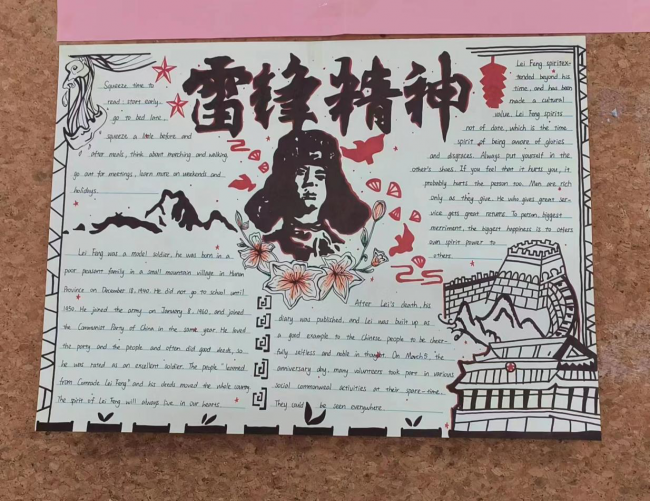 雷锋精神
Squeeze time to
read: start early,
go to bed late,
squeeze a little before and
after meals, think about marching and walking,
go out for meetings, learn more on weekends and
holidays.
Lei Feng was a model soldier, he was born in a
poor peasant family in a small mountain village in Hunan
Province on December 18, 1940. He did not go to school until
1950. He joined the army on January 8, 1960, and joined
the Communist Party of China in the same year. He loved
the party and the people and often did good deeds, so
he was rated as an excellent soldier. The people "learned
from Comrade Lei Feng" and his deeds moved the whole country
The spirit of Lei Feng will always live in our hearts.
Lei Feng spirit ex-
tended beyond his
time, and has been
made a cultural
value. Lei Feng spirits
not of done, which is the time
spirit of being aware of glories
and disgraces. Always put yourself in the
other's shoes. If you feel that it hurts you, it
probably hurts the person too. Man are rich
only as they give. He who gives great ser-
vice gets great returns. To person biggest
merriment, the biggest happiness is to others
own spirit power to
others.
After Lei's death, his
diary was published, and Lei was built up as
a good example to the Chinese people to be cheer-
fully selfless and noble in thought. On March 5, the
anniversary day, many volunteers took part in various
social commonweal activities at their spare-time.
They could be seen everywhere.